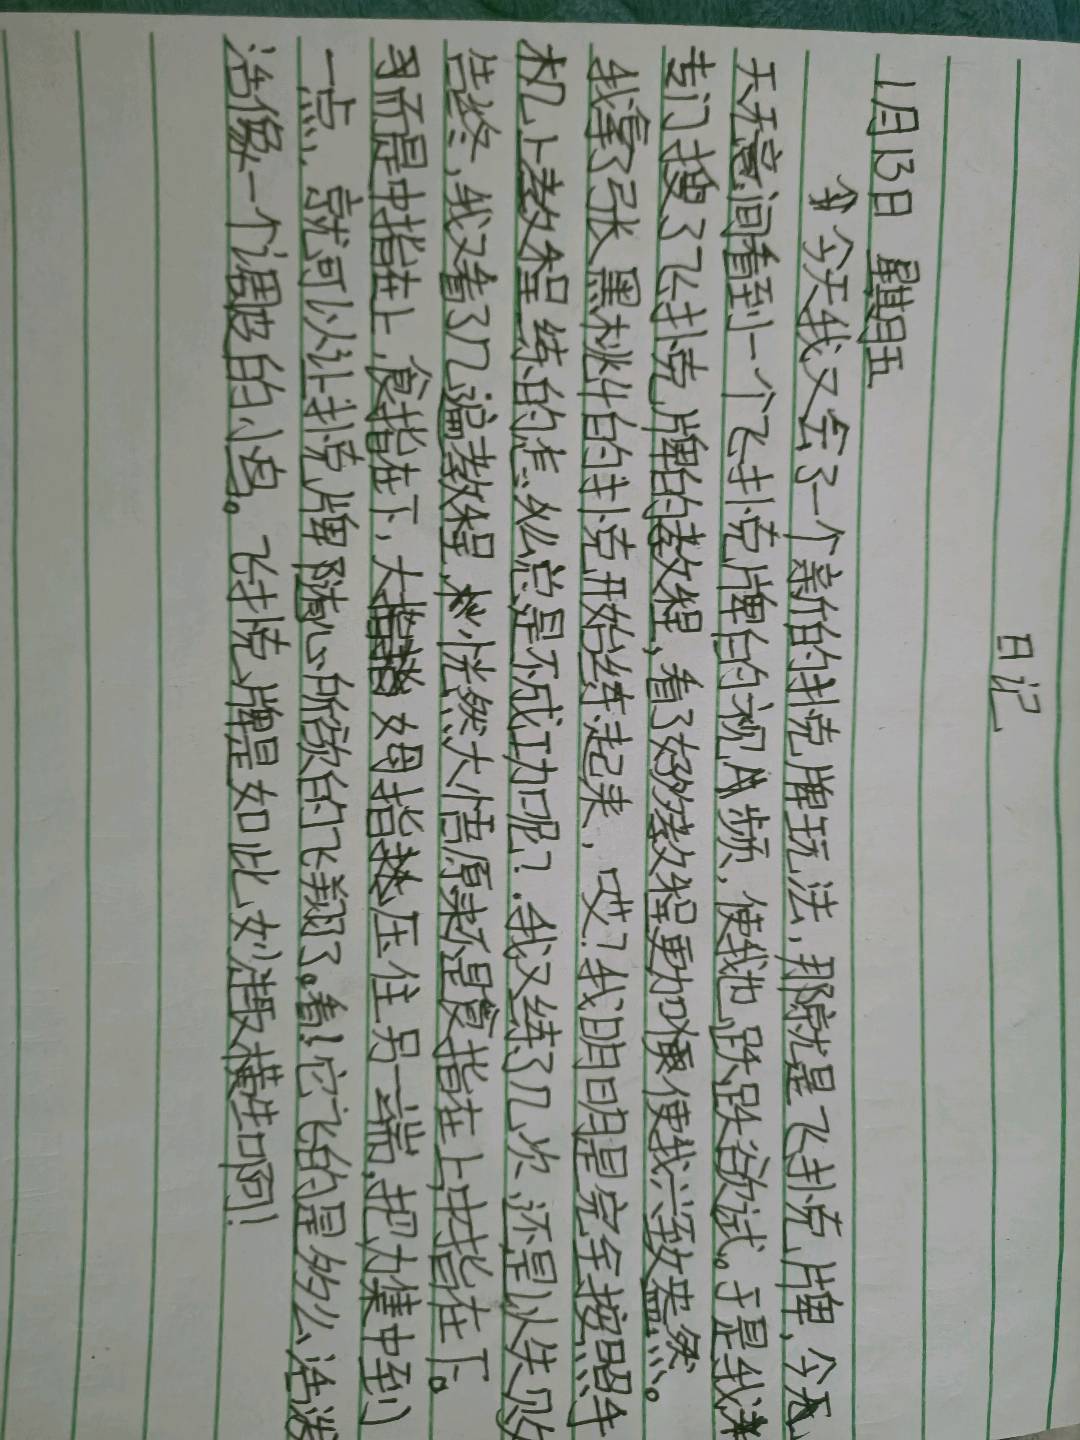 日记
1月13日 星期五
今天我又会了一个新的扑克牌玩法,那就是飞扑克牌,今天
天无意间看到一个飞扑克牌的视频,使我也跃跃欲试。于是我
专门搜了飞扑克牌的教程,看了好多教程動使我兴致盎然。
我拿了张黑桃件的扑克开始练起来,哎?我明明是完全按照手
机上教程练的怎么总是不成功呢?.我又练了几次,还是以失败
告终,我又看了几遍教程,恍然大悟原来不是食指在上,中指在下。
而是中指在上,食指在下,大拇指压住另一端,把力集中到
一点,就可以让扑克牌随心所欲的飞翔了。看!它飞的是多么活泼
活像一个调皮的小鸟。飞扑克牌是如此妙趣横生啊!